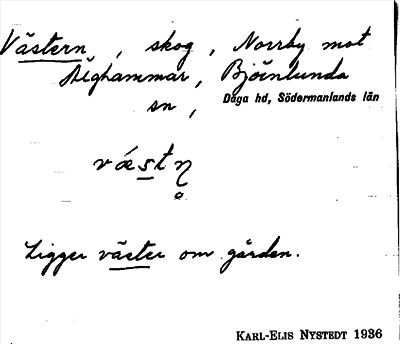 Västern, skog, Norrby mot
Älghammar, Björnlunda
sn, Daga hd, Södermanlands län
væstn̥
Ligger väster om gården.
KARL-ELIS NYSTEDT 1936